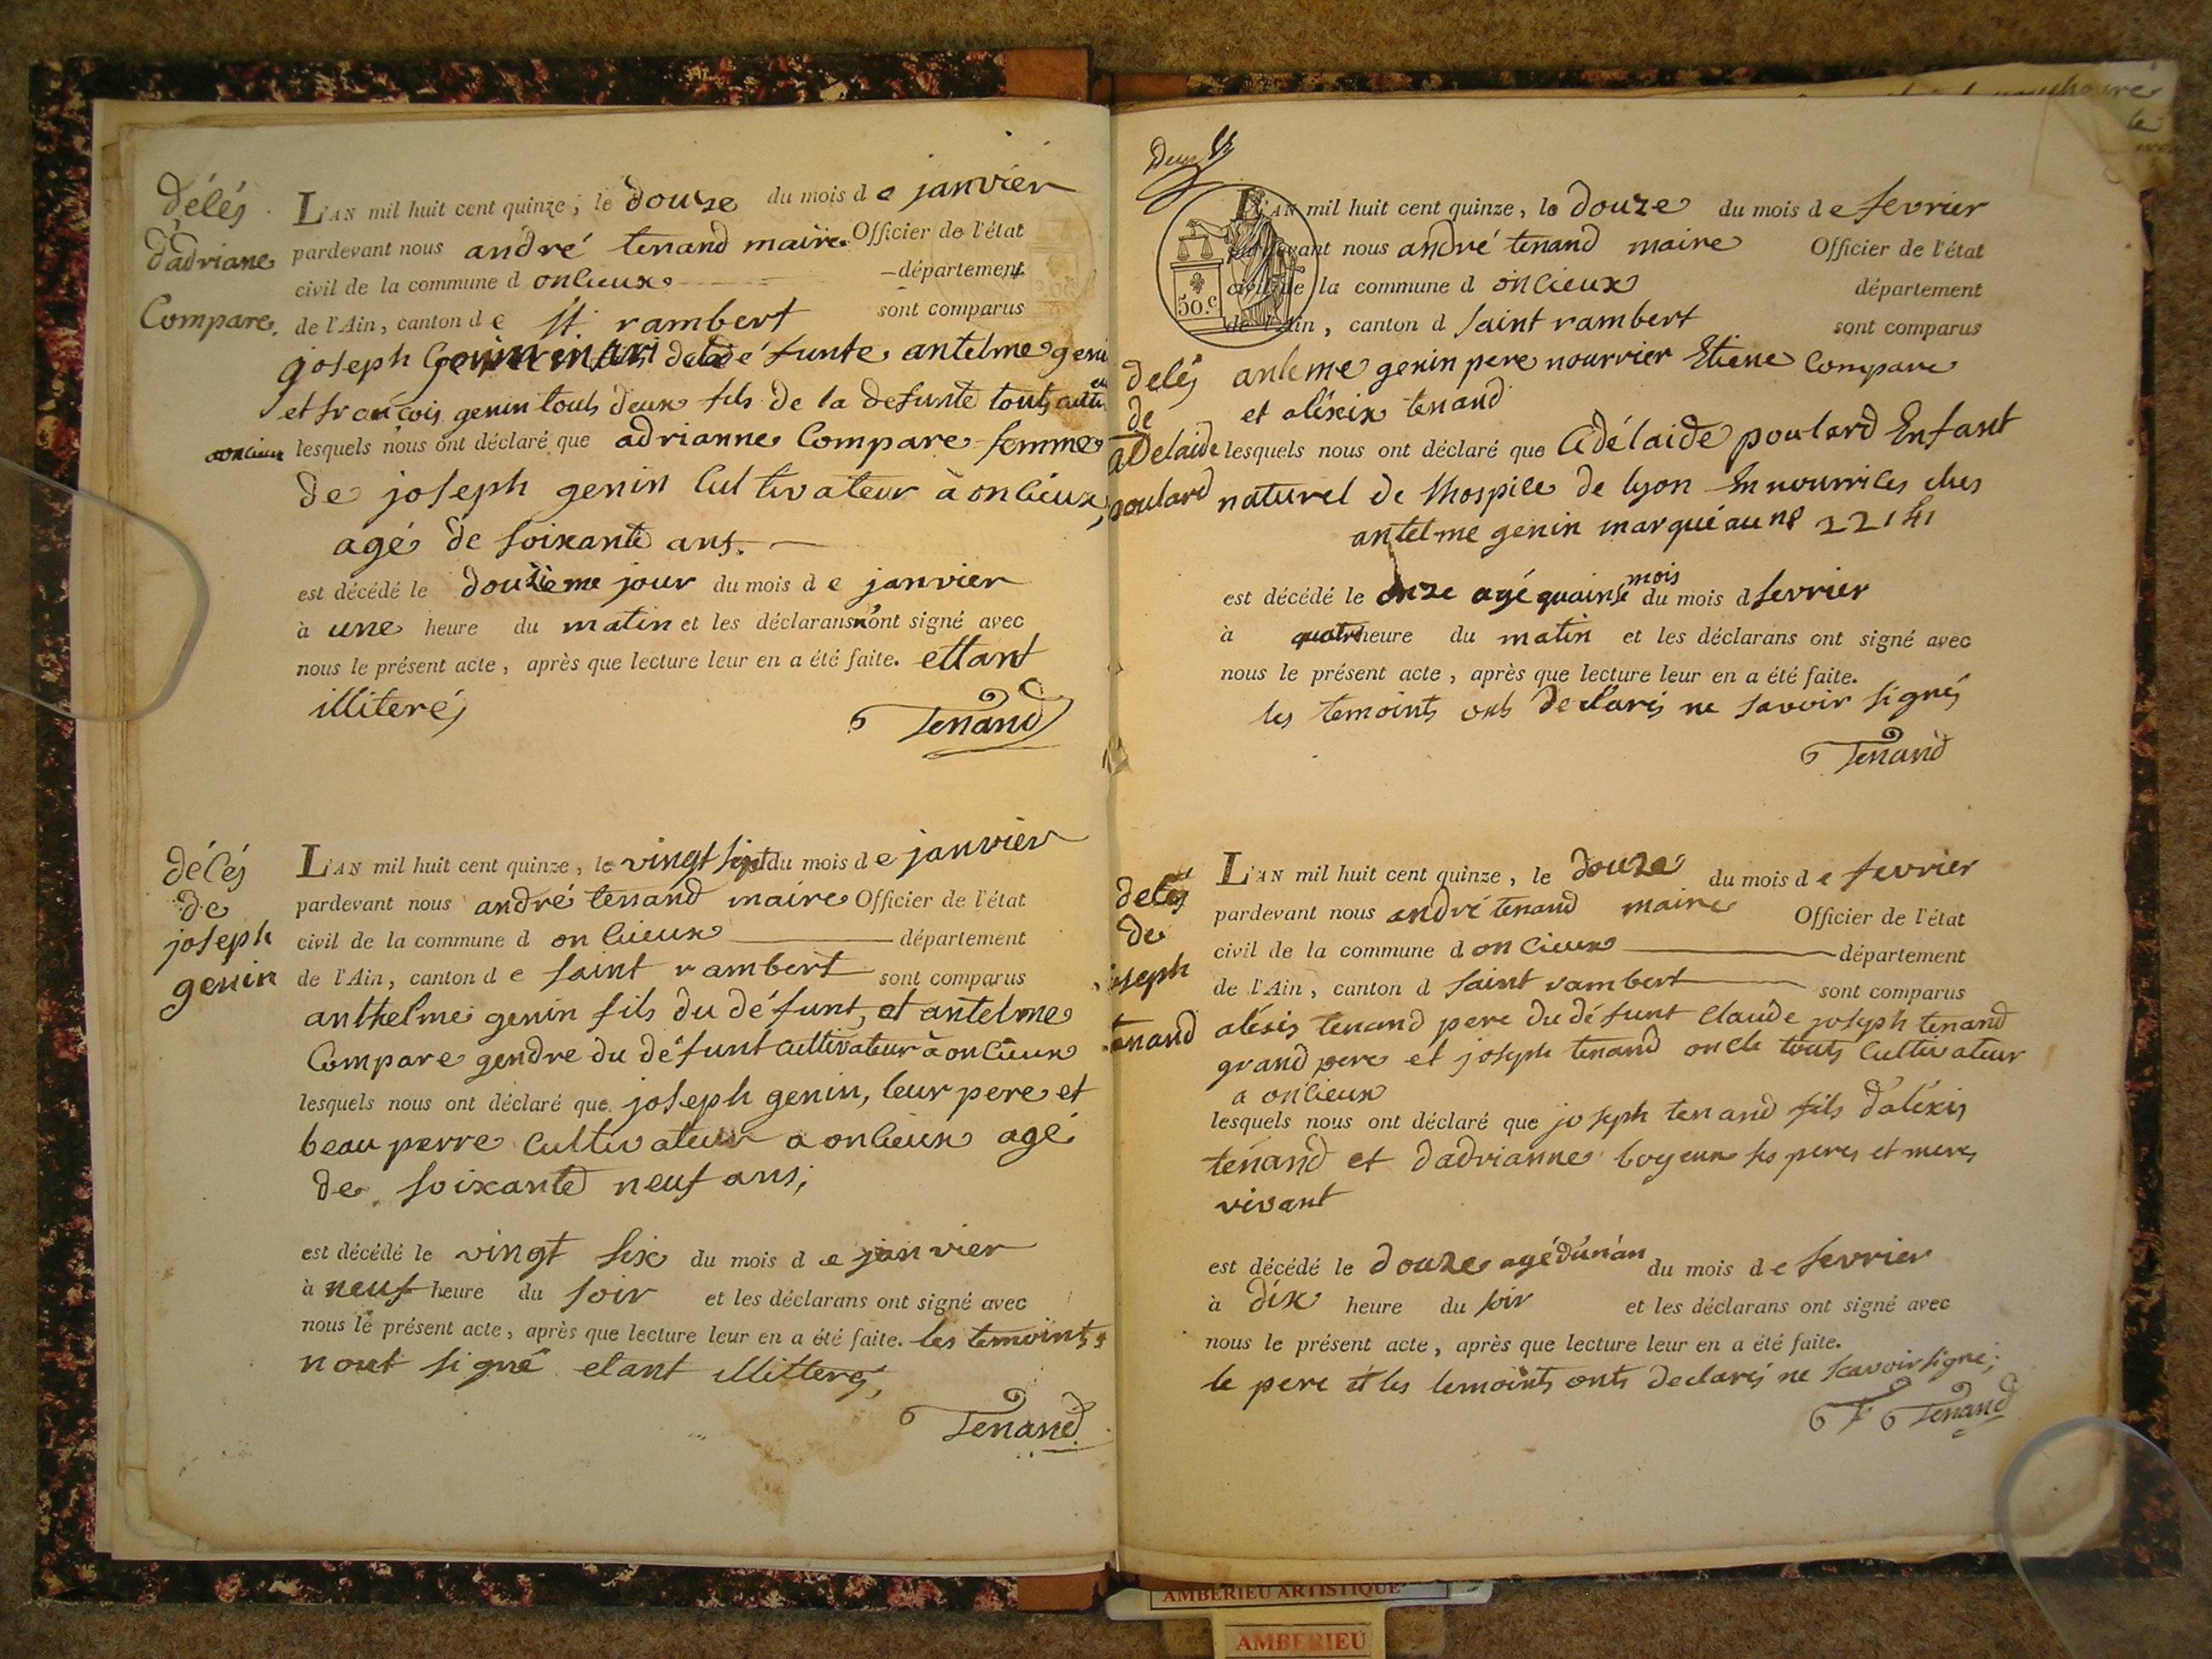 délés
d'adriane
Compare.
L'AN mil huit cent quinze, le douze du mois de janvier
pardevant nous andré tenand maire Officier de l'état
civil de la commune d onlieux département
de l'Ain, canton de St rambert sont comparus
joseph genin mari de la défunte antelme geni
et francois genin touts deux fils de la defunte touts
lesquels nous ont déclaré que adrianne Compare femme
de joseph genin Cultivateur à onlieux
agé de soixante ans.
est décédé le douzieme jour du mois de janvier
à une heure du matin et les déclarans n'ont signé avec
nous le présent acte, après que lecture leur en a été faite. ettant
illiterés
Tenand
délés
de
joseph
genin
L'AN mil huit cent quinze, le vingt sept du mois de janvier
pardevant nous andré tenand maire Officier de l'état
civil de la commune d onlieux département
de l'Ain, canton de saint rambert sont comparus
anthelme genin fils du défunt, et antelme
Compare gendre du défunt cultivateur à onlieux
lesquels nous ont déclaré que joseph genin, leur pere et
beau perre Cultivateur a onlieux agé
de soixante neuf ans;
est décédé le vingt six du mois de janvier
à neuf heure du soir et les déclarans ont signé avec
nous le présent acte, après que lecture leur en a été faite. les temoints
nont signé etant illitterés,
Tenand
50.c
delés
de
adelaide
poulard
L'AN mil huit cent quinze, le douze du mois de fevrier
pardevant nous andré tenand maire Officier de l'état
civil de la commune d onlieux département
de l'Ain, canton d saint rambert sont comparus
antelme genin pere nourrier Etiene Compare
et aléxix tenand
lesquels nous ont déclaré que adélaide poulard Enfant
naturel de lhospice de lyon En nourrices ches
antelme genin marqué au n° 22141
est décédé le onze agé quainse mois du mois d fevrier
à quatre heure du matin et les déclarans ont signé avec
nous le présent acte, après que lecture leur en a été faite.
les temoints onts declarés ne savoir signés
Tenand
delés
de
joseph
tenand
L'AN mil huit cent quinze, le douze du mois de fevrier
pardevant nous andré tenand maire Officier de l'état
civil de la commune d onlieux département
de l'Ain, canton d saint rambert sont comparus
aléxis tenand pere du défunt Claude joseph tenand
grand pere et joseph tenand oncle touts Cultivateur
a onlieux
lesquels nous ont déclaré que joseph tenand fils d'aléxis
tenand et d'adrianne boyeux ses peres et meres
vivant
est décédé le douze agé d'un'an du mois de fevrier
à dix heure du soir et les déclarans ont signé avec
nous le présent acte, après que lecture leur en a été faite.
le pere et les temoints onts declarés ne scavoir signe;
Tenand
AMBERIEU ARTISTIQUE
AMBERIEU